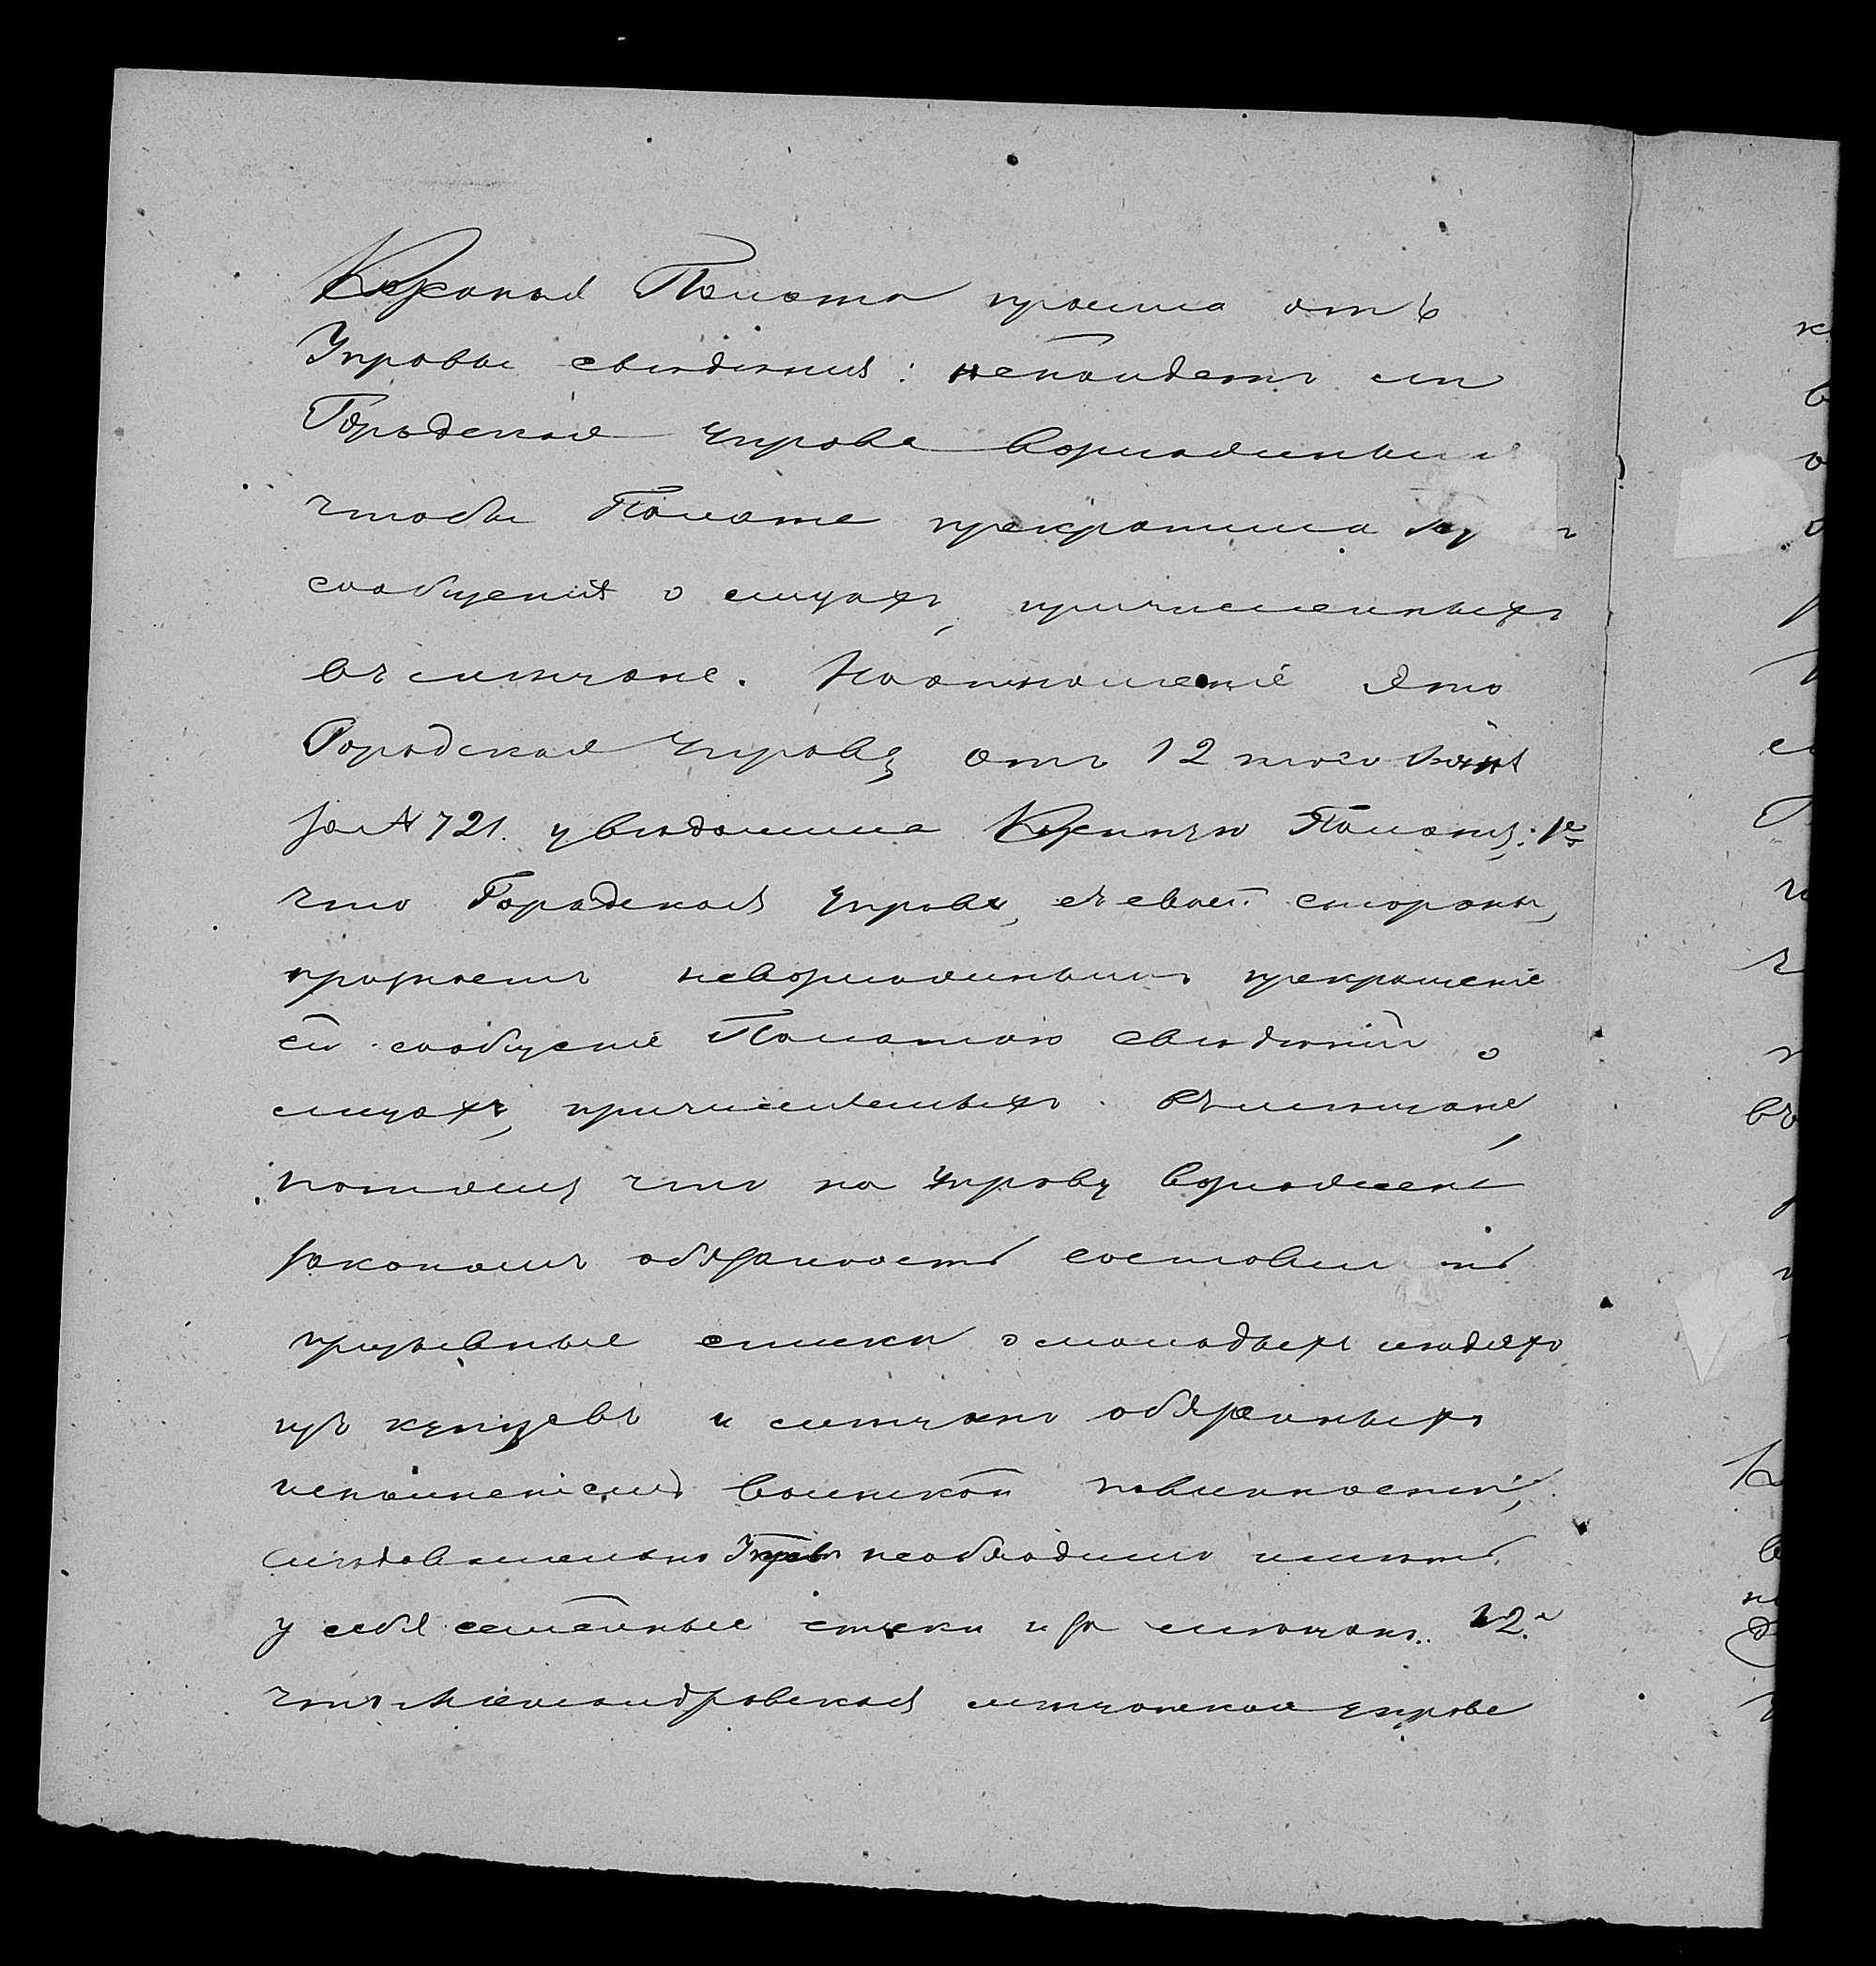 Казеная Палата просила отъ
Управы сведения: ненайдетъ ли
Городская Управа возможнымъ
чтобы Палата прекратила
сообщения о лицахъ, причисленныхъ
въ мещане. На отношение это
Городская Управа отъ 12 того
за № 721. уведомила Казенную Палату: 1е
что Городская Управа, съ своей стороны,
признаетъ невозможнымъ прекращение
ей сообщение Палатою сведений о
лицахъ, причисляемыхъ въ мещане,
потому что на Управу возложена
закономъ обязаность составлять
призывные списки о молодыхъ людяхъ
изъ купцовъ и мещанъ обязанныхъ
исполнениемъ воинской повинности,
следовательно Управе необходимо иметь
у себя семейные списки и за мещанъ. 2е
что Александровская мещанская управа